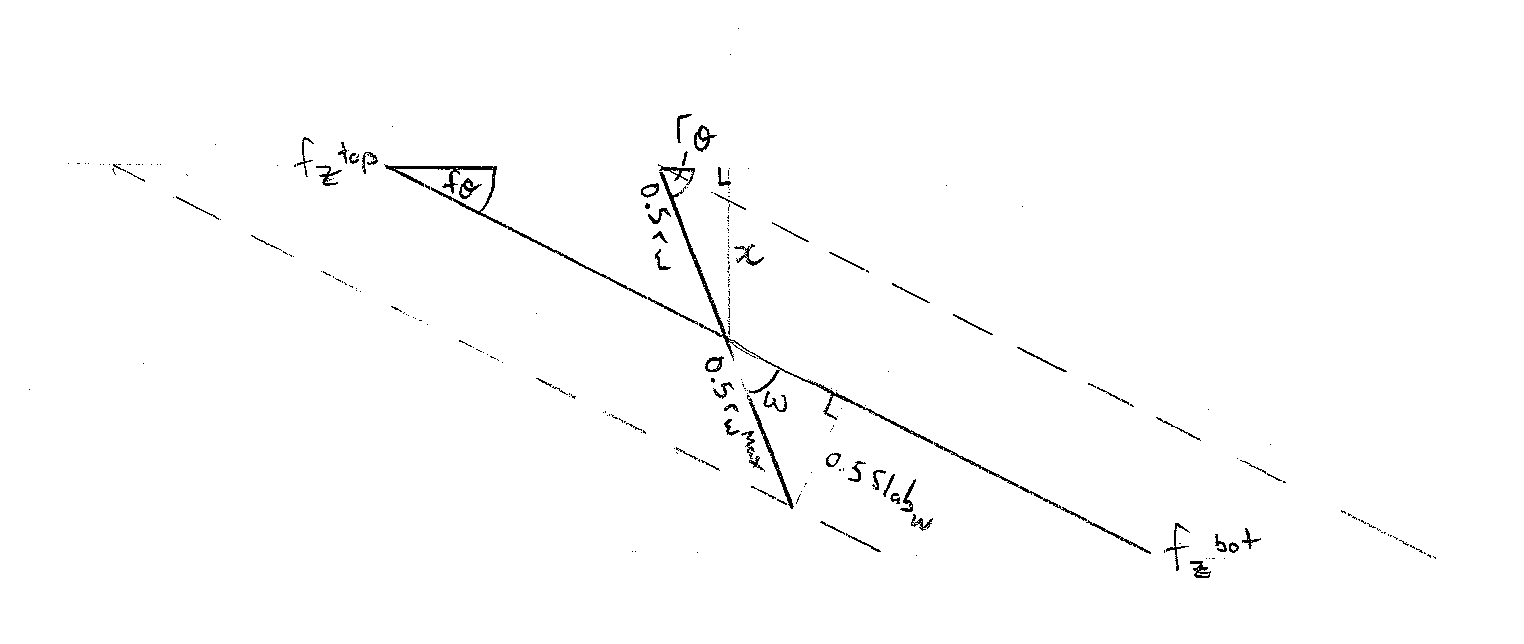 rθ
fz top
fθ
0.5 rw
x
0.5 rw max
ω
0.5 slab w
fz bot